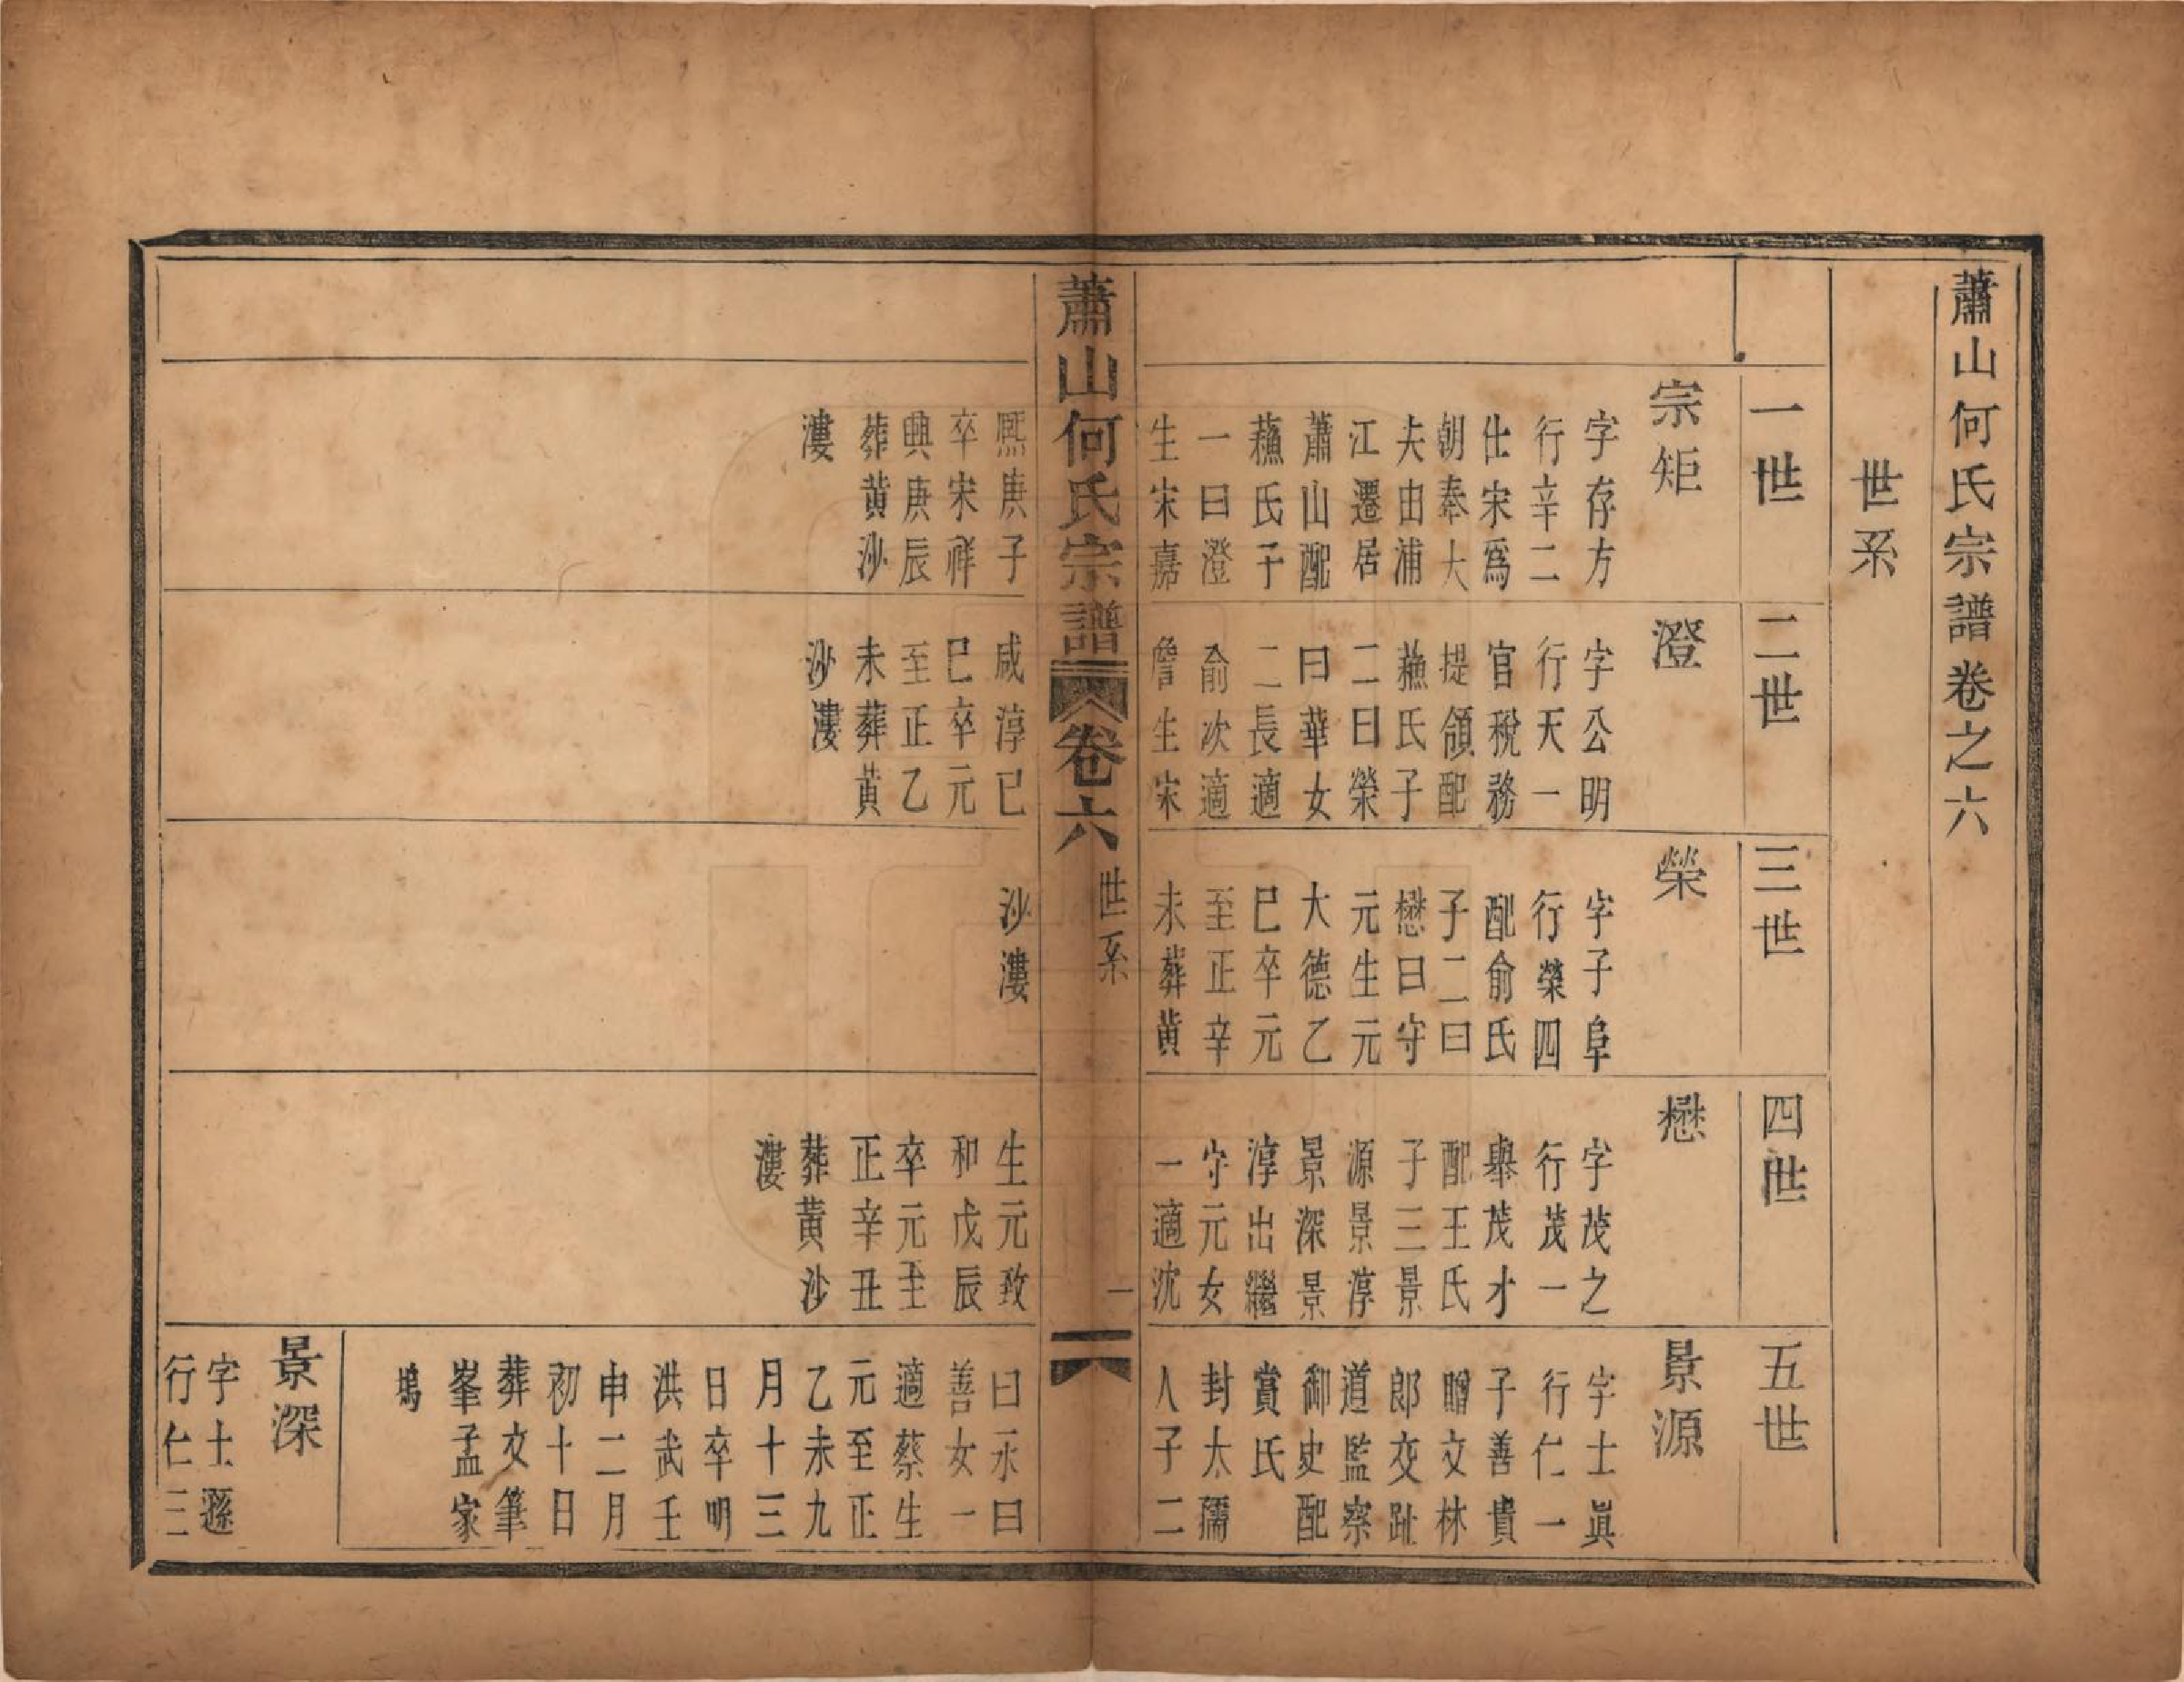 蕭山何氏宗譜卷之六
世系
一世
宗矩
字存方
行辛二
仕宋爲
朝奉大
夫由浦
江遷居
蕭山配
蘓氏子
一曰澄
生宋嘉
熈庚子
卒宋祥
興庚辰
葬黄沙
漊
二世
澄
字公明
行天一
官稅務
提領配
蘓氏子
二曰榮
曰華女
二長適
俞次適
詹生宋
咸淳已
巳卒元
至正乙
未葬黄
沙漊
三世
榮
字子阜
行榮四
配俞氏
子二曰
懋曰守
元生元
大德乙
巳卒元
至正辛
未葬黄
沙漊
四世
懋
字茂之
行茂一
舉茂才
配王氏
子三景
源景淳
景深景
淳出繼
守元女
一適沈
生元致
和戊辰
卒元至
正辛丑
葬黄沙
漊
五世
景源
字士眞
行仁一
子善貴
贈文林
郎交趾
道監察
御史配
賞氏
封太孺
人子二
曰永曰
善女一
適蔡生
元至正
乙未九
月十三
日卒明
洪武壬
申二月
初十日
葬文筆
峯孟家
塢
景深
字士遜
行仁三
蕭山何氏宗譜
卷六
世系
一